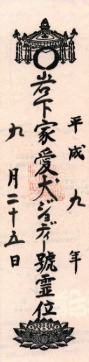 平成九年
岩下家愛犬ジョディー號霊位
九月二十五日